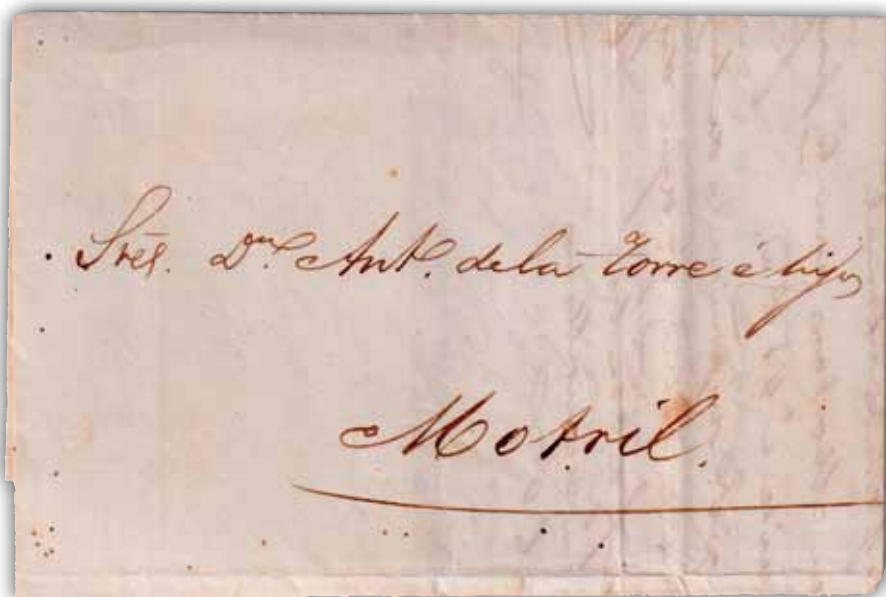 Sres. Dn. Antº. de la Torre é hijos
Motril.